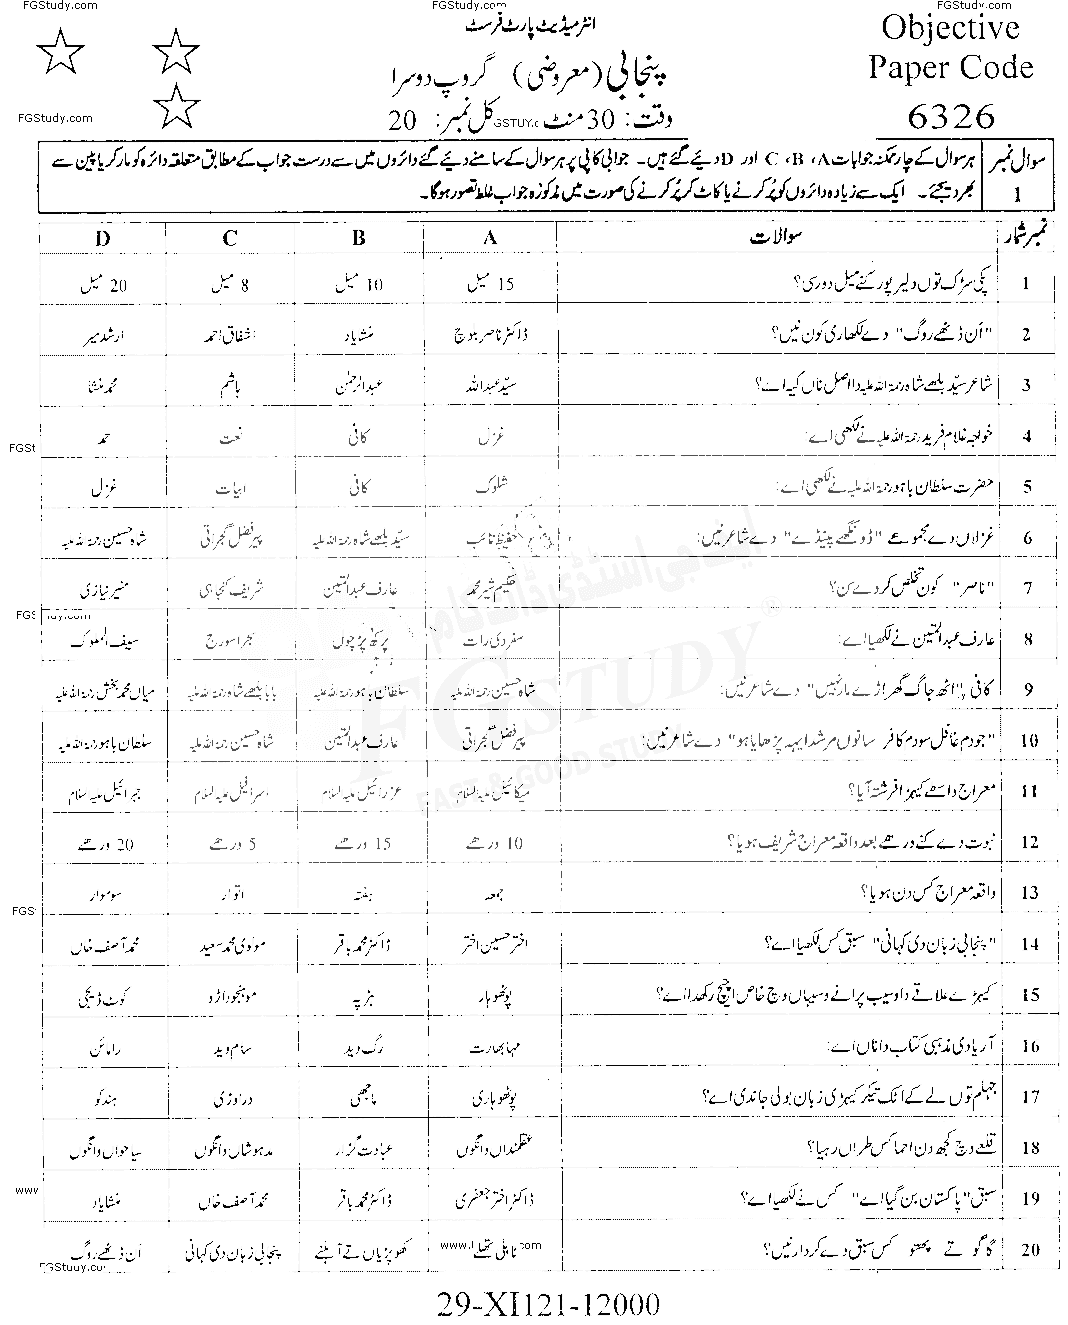 FGStudy.com FGStudy.com FGStudy.com
انٹرمیڈیٹ پارٹ فرسٹ
Objective
پنجابی (معروضی) گروپ دوسرا
Paper Code
FGStudy.com
وقت: 30 منٹ کل نمبر: 20
6326
سوال نمبر 1
ہر سوال کے چار ممکنہ جوابات A ، B ، C اور D دئیے گئے ہیں۔ جوابی کاپی پر ہر سوال کے سامنے دئیے گئے دائروں میں سے درست جواب کے مطابق متعلقہ دائرہ کو مارکر یا پین سے
بھر دیجئے۔ ایک سے زیادہ دائروں کو پُر کرنے یا کاٹ کر پُر کرنے کی صورت میں مذکورہ جواب غلط تصور ہوگا۔
نمبر شمار سوالات A B C D
1 پکی سڑک توں دلیر پور کنے میل دور سی؟ 15 میل 10 میل 8 میل 20 میل
2 "اَن ڈٹھے روگ" دے لکھاری کون نیں؟ ڈاکٹر ناصر بلوچ منشا یاد اشفاق احمد ارشد میر
3 شاعر سیّد بلھے شاہ رحمۃ اللہ علیہ دا اصل ناں کیہ اے؟ سیّد عبداللہ عبدالرحمٰن ہاشم محمد منشا
4 خواجہ غلام فرید رحمۃ اللہ علیہ نے لکھی اے: غزل کافی نعت حمد
5 حضرت سلطان باہو رحمۃ اللہ علیہ نے لکھی اے: شلوک کافی ابیات غزل
6 غزلاں دے مجموعے "ڈونگھے پینڈے" دے شاعر نیں: حفیظ تائب سیّد بلھے شاہ رحمۃ اللہ علیہ پیر فضل گجراتی شاہ حسین رحمۃ اللہ علیہ
7 "ناصر" کون تخلص کردے سن؟ حکیم شیر محمد عارف عبدالمتین شریف کنجاہی منیر نیازی
8 عارف عبدالمتین نے لکھیا اے: سفر دی رات پرکھ پڑچول بجرا سورج سیف الملوک
9 کافی "اٹھ جاگ گھراڑے مار نہیں" دے شاعر نیں: شاہ حسین رحمۃ اللہ علیہ سلطان باہو رحمۃ اللہ علیہ بابا بلھے شاہ رحمۃ اللہ علیہ میاں محمد بخش رحمۃ اللہ علیہ
10 "جو دم غافل سو دم کافر سانوں مرشد ایہہ پڑھایا ہو" دے شاعر نیں: پیر فضل گجراتی عارف عبدالمتین شاہ حسین رحمۃ اللہ علیہ سلطان باہو رحمۃ اللہ علیہ
11 معراج داسے کیہڑا فرشتہ آیا؟ میکائیل علیہ السلام عزرائیل علیہ السلام اسرافیل علیہ السلام جبرائیل علیہ سلام
12 نبوت دے کنے ورھے بعد واقعہ معراج شریف ہویا؟ 10 ورھے 15 ورھے 5 ورھے 20 ورھے
13 واقعہ معراج کس دن ہویا؟ جمعہ ہفتہ اتوار سوموار
14 "پنجابی زبان دی کہانی" سبق کس لکھیا اے؟ اختر حسین اختر ڈاکٹر محمد باقر مولوی محمد سعید محمد آصف خاں
15 کیہڑے علاقے دا وسیب پرانے وسیباں وچ خاص اچیچ رکھدا اے؟ پوٹھوہار ہڑپہ موہنجوداڑو کوٹ ڈیجی
16 آریا دی مذہبی کتاب دا ناں اے: مہا بھارت رگ وید سام وید رامائن
17 جہلم توں لے کے اٹک تیکر کیہڑی زبان بولی جاندی اے؟ پوٹھوہاری ماجھی دراوڑی ہندکو
18 قلعے وچ کجھ دن احما کس طراں رہیا؟ عقلمنداں وانگوں عبادت گزار مدہوشاں وانگوں سیاحواں وانگوں
19 سبق "پاکستان بن گیا اے" کس نے لکھیا اے؟ ڈاکٹر اختر جعفری ڈاکٹر محمد باقر محمد آصف خاں منشا یاد
20 گاگو تے پھتو کس سبق دے کردار نیں؟ نا پلی تھلے کھوپڑیاں تے آہلنے پنجابی زبان دی کہانی اَن ڈٹھے روگ
FGSTUDY
FAST & GOOD STUDY
FGStudy.com
29-XI121-12000